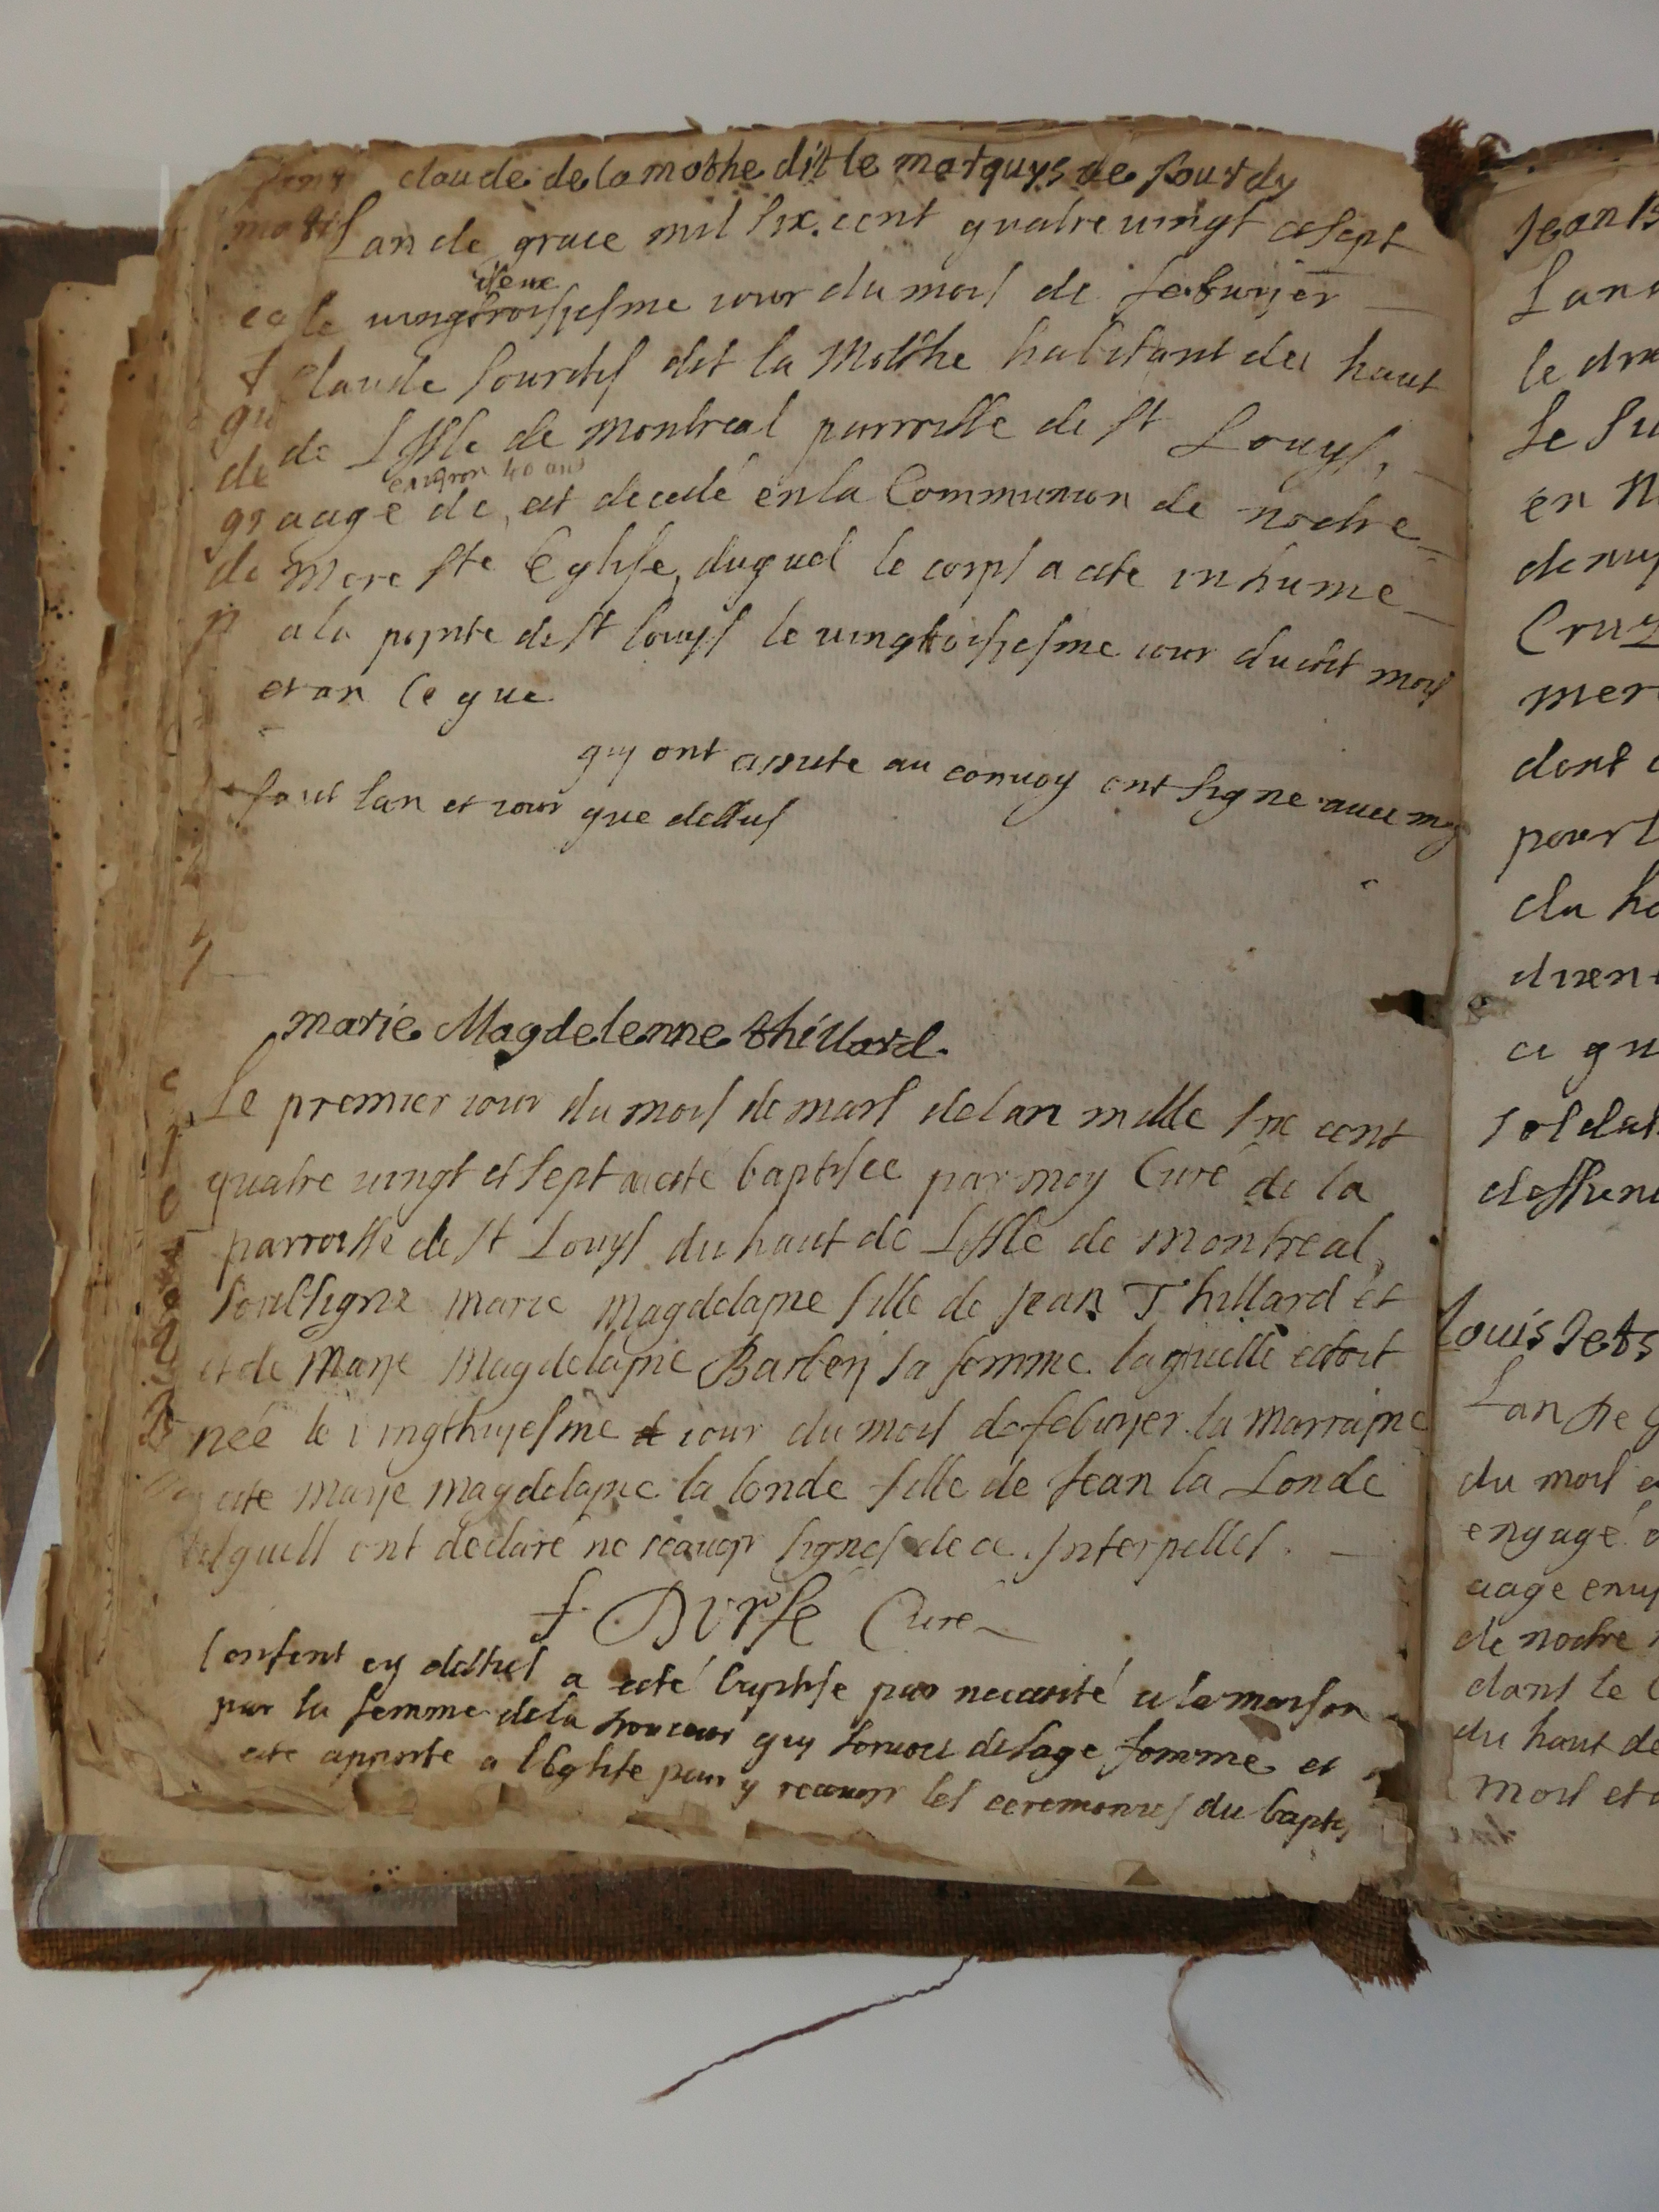 claude de la mothe dit le marquys de sourdy
Lan de grace mil six cent quatre vingt et sept
deux
le vingtroisyesme iour du mois de febvrier
Claude Sourdys dit la Mothe habitant du haut
de Lisle de Montreal parroisse de st Louys,
environ 40 ans
aagé de, est decedé en la Communion de nostre
Mere ste Eglise, duquel le corps a esté inhumé
a la poynte de st louys le vingttroisyesme iour dudit mois
et an Ce que
quy ont assisté au convoy ont signe avec moy
lan et iour que dessus
marie Magdelenne thillard.
Le premier iour du mois de mars de lan mille six cent
quatre vingt et sept a esté baptisée par moy Curé de la
parroisse de st Louys du haut de Lisle de Montreal,
soussigné marie magdelayne fille de Jean Thillard et
et de Marye Magdelayne Barbery sa femme laquelle estoit
née le vingthuyesme iour du mois de febvryer la marrayne
esté marye magdelayne la londe fille de Jean la Londe
lesquells ont declaré ne scavoyr signer de ce Interpelles.
f. Durfé Curé
lenfent cy dessus a esté baptise par necessité a la maison
par la femme de la quy servoit de sage femme et
esté apporté a lEglise pour y recevoyr les ceremonies du baptes
Jean
Lan
le
Le Su
en
de
Cruz
mer
dont
pour
du
ce qu
soldat
Louis
Lan de
du mois
engagé
aage
de nostre
dans le
du haut de
mois et